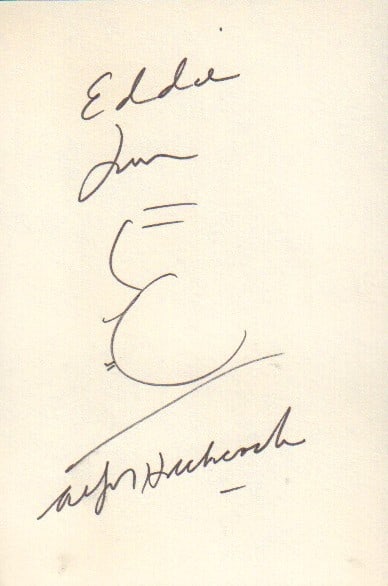 Eddie
from
Alfred Hitchcock